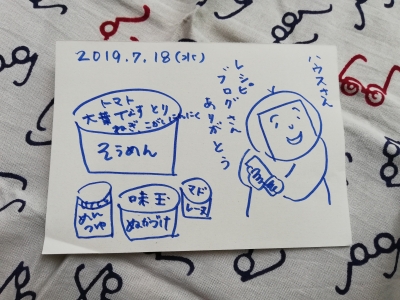 2019.7.18(水)
ハウスさん
レシピ
ブログさん
ありがとう
トマト
大葉 なす とり
ねぎ こがしにんにく
そうめん
めん
つゆ
味玉
ぬかづけ
マド
レーヌ